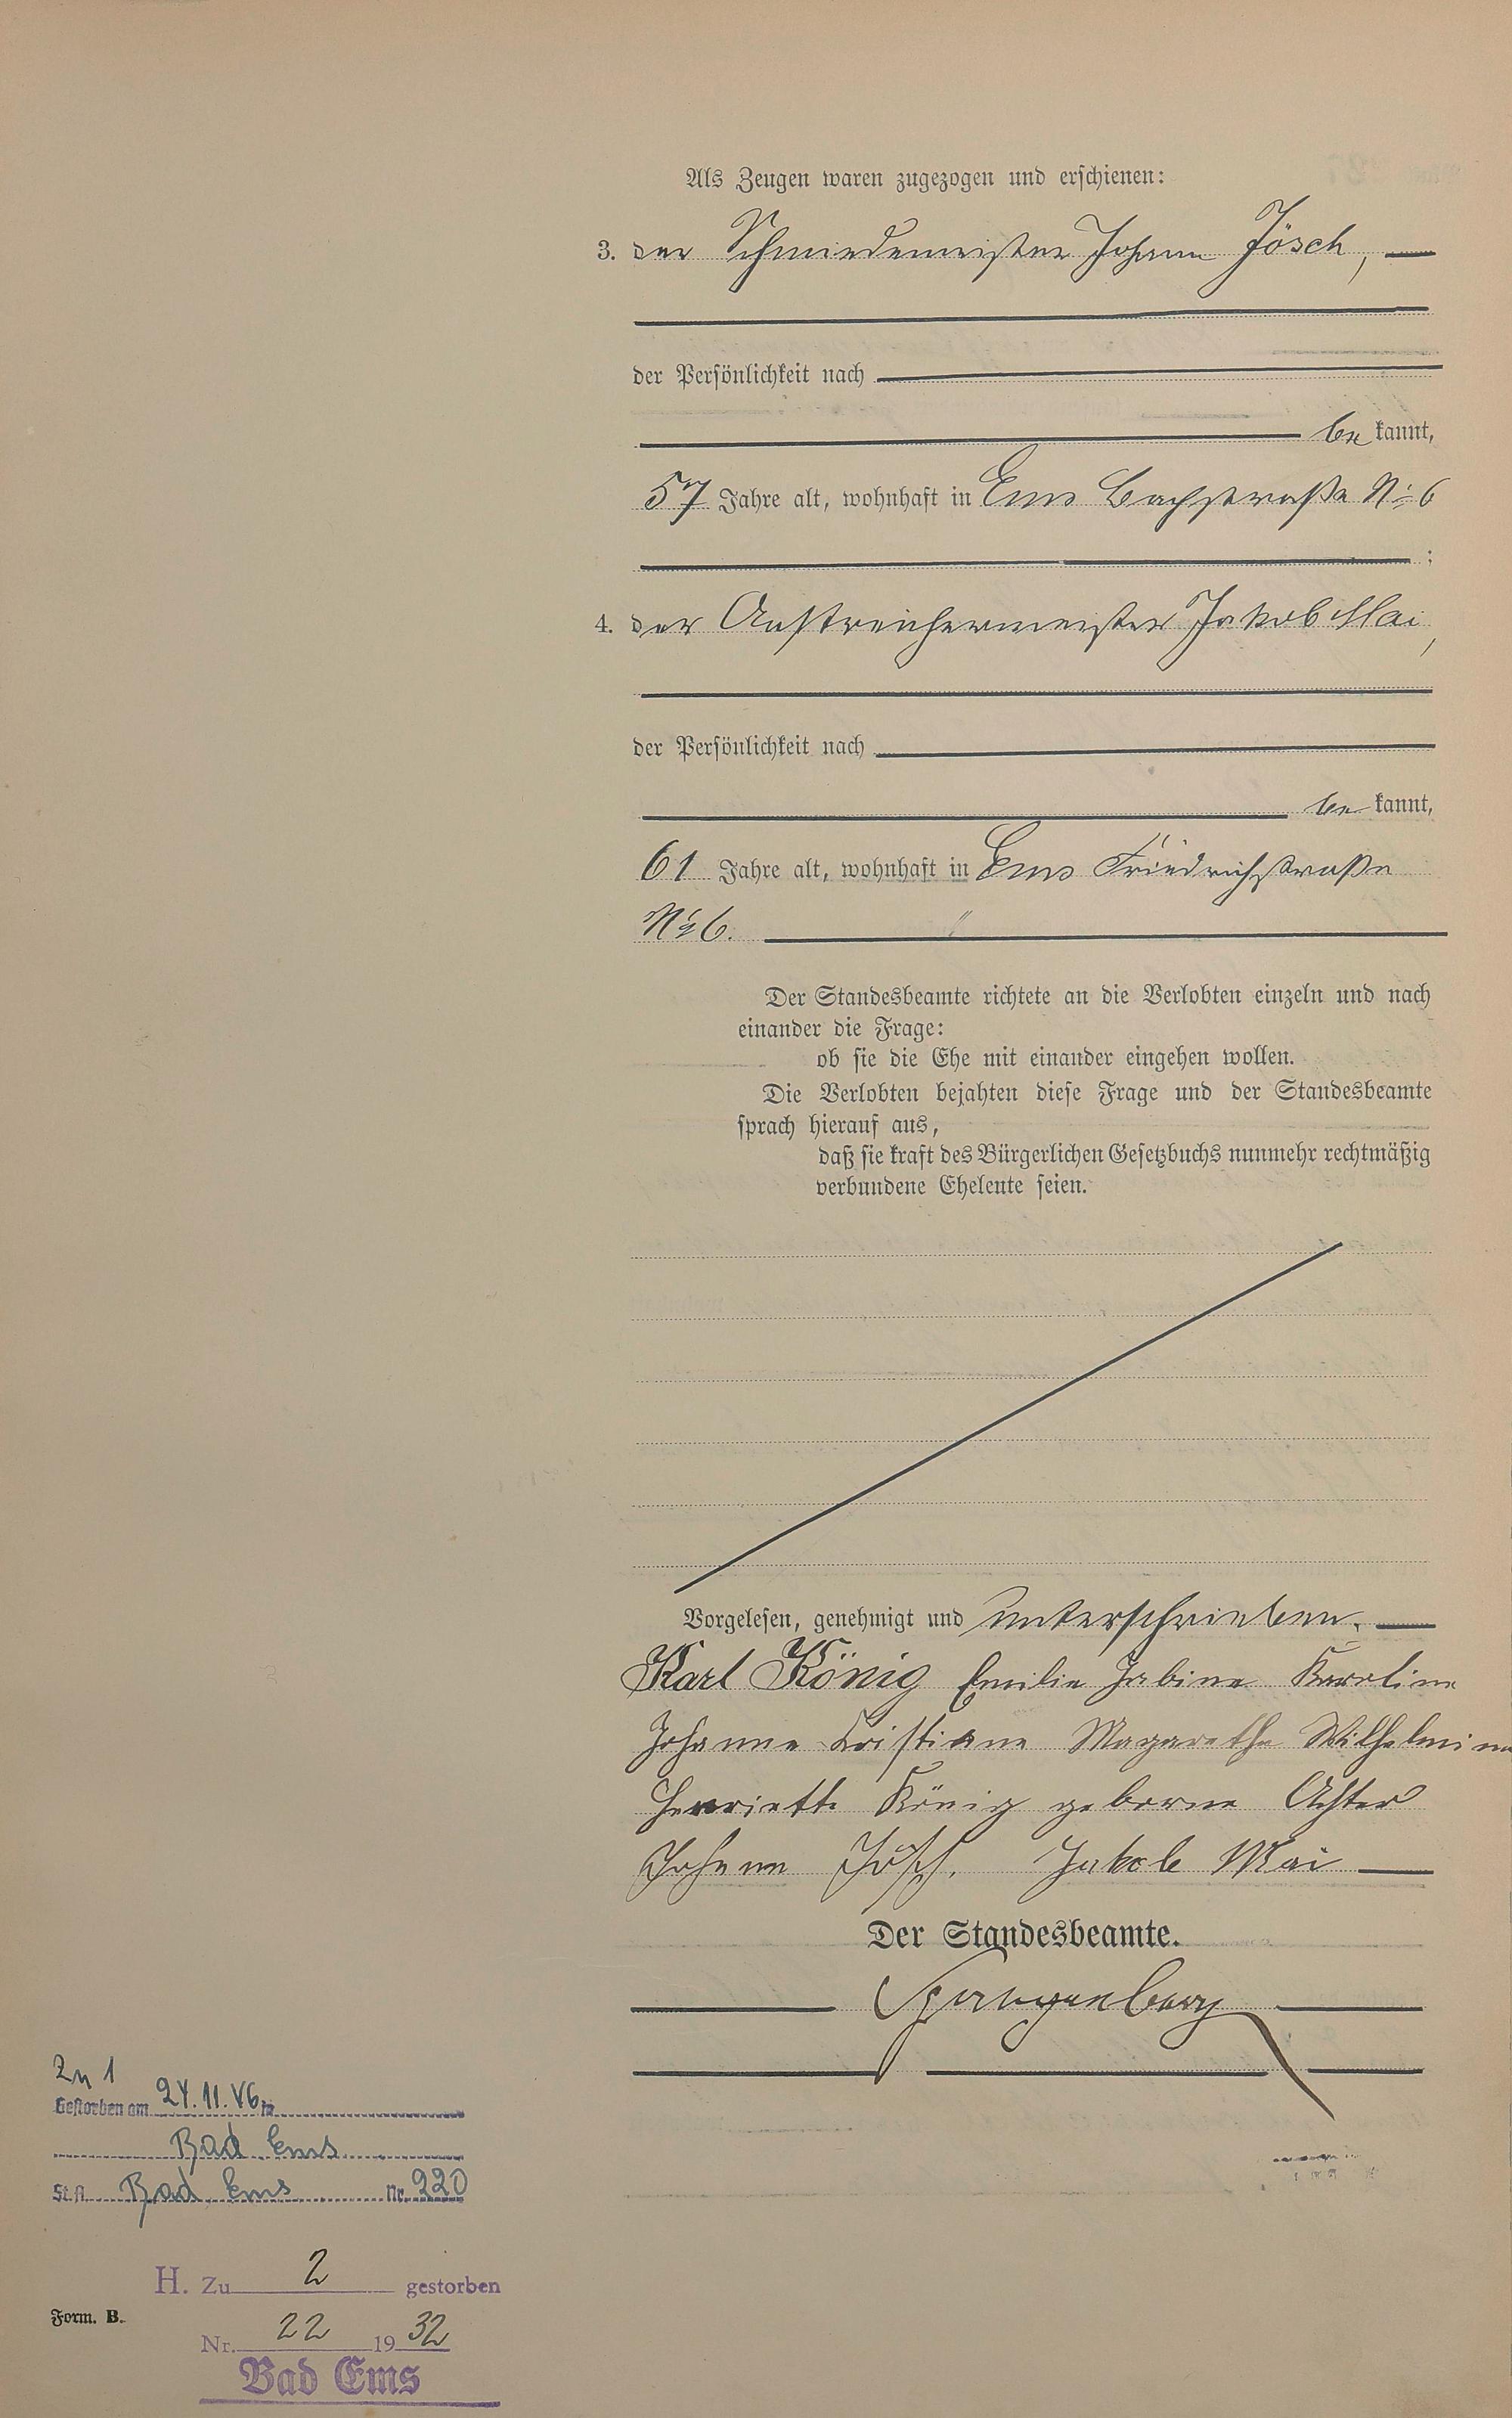 Als Zeugen waren zugezogen und erschienen:
3. der Schmiedemeister Johann Jösch,
der Persönlichkeit nach
be kannt,
57 Jahre alt, wohnhaft in Ems Bachstraße No 6
;
4. der Anstreichermeister Jakob Mai,
der Persönlichkeit nach
be kannt,
61 Jahre alt, wohnhaft in Ems Friedrichstraße
No 6.
Der Standesbeamte richtete an die Verlobten einzeln und nach
einander die Frage:
ob sie die Ehe mit einander eingehen wollen.
Die Verlobten bejahten diese Frage und der Standesbeamte
sprach hierauf aus,
daß sie kraft des Bürgerlichen Gesetzbuchs nunmehr rechtmäßig
verbundene Eheleute seien.
Vorgelesen, genehmigt und unterschrieben.
Karl König Emilie Sabine Karoline
Johanne Kristiane Magarethe Wilhelmine
Henriette König geborne Achter
Johann Jösch. Jakob Mai
Der Standesbeamte.
Spangenberg
Zu 1
Gestorben am 24.11.46 in
Bad Ems
St. A. Bad Ems Nr. 220
H. Zu 2 gestorben
Form. B.
Nr. 22 1932
Bad Ems